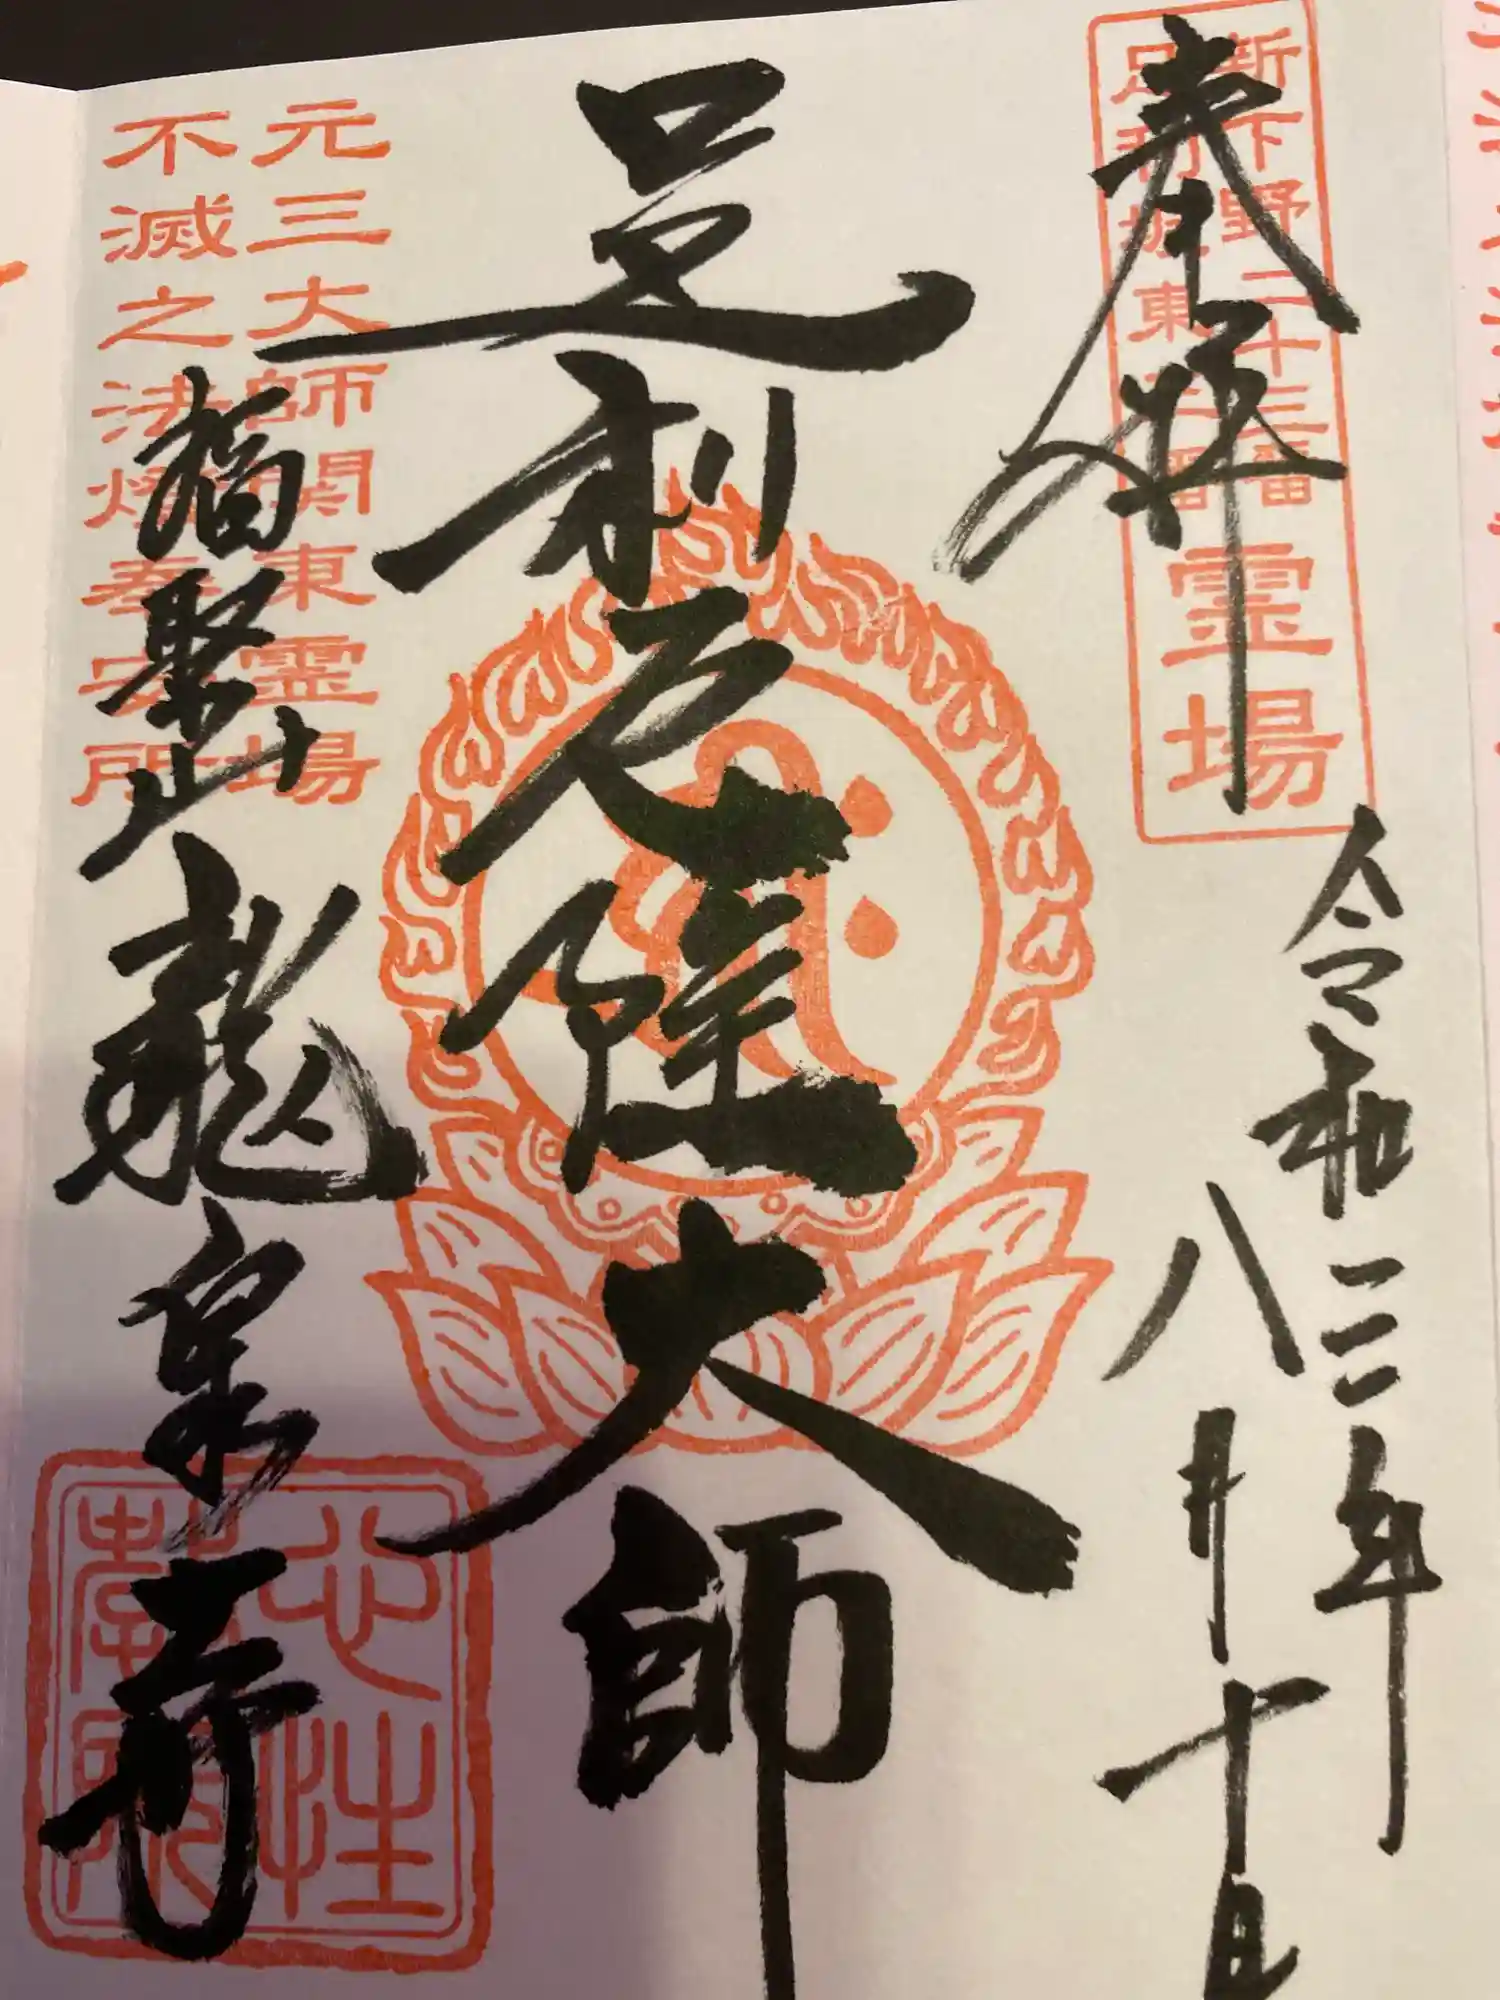 奉拝
新下野三十三番霊場
足利坂東三番
令和三年
八月十日
足利厄除大師
元三大師関東霊場
不滅之法燈奉安所
福聚山
龍泉寺